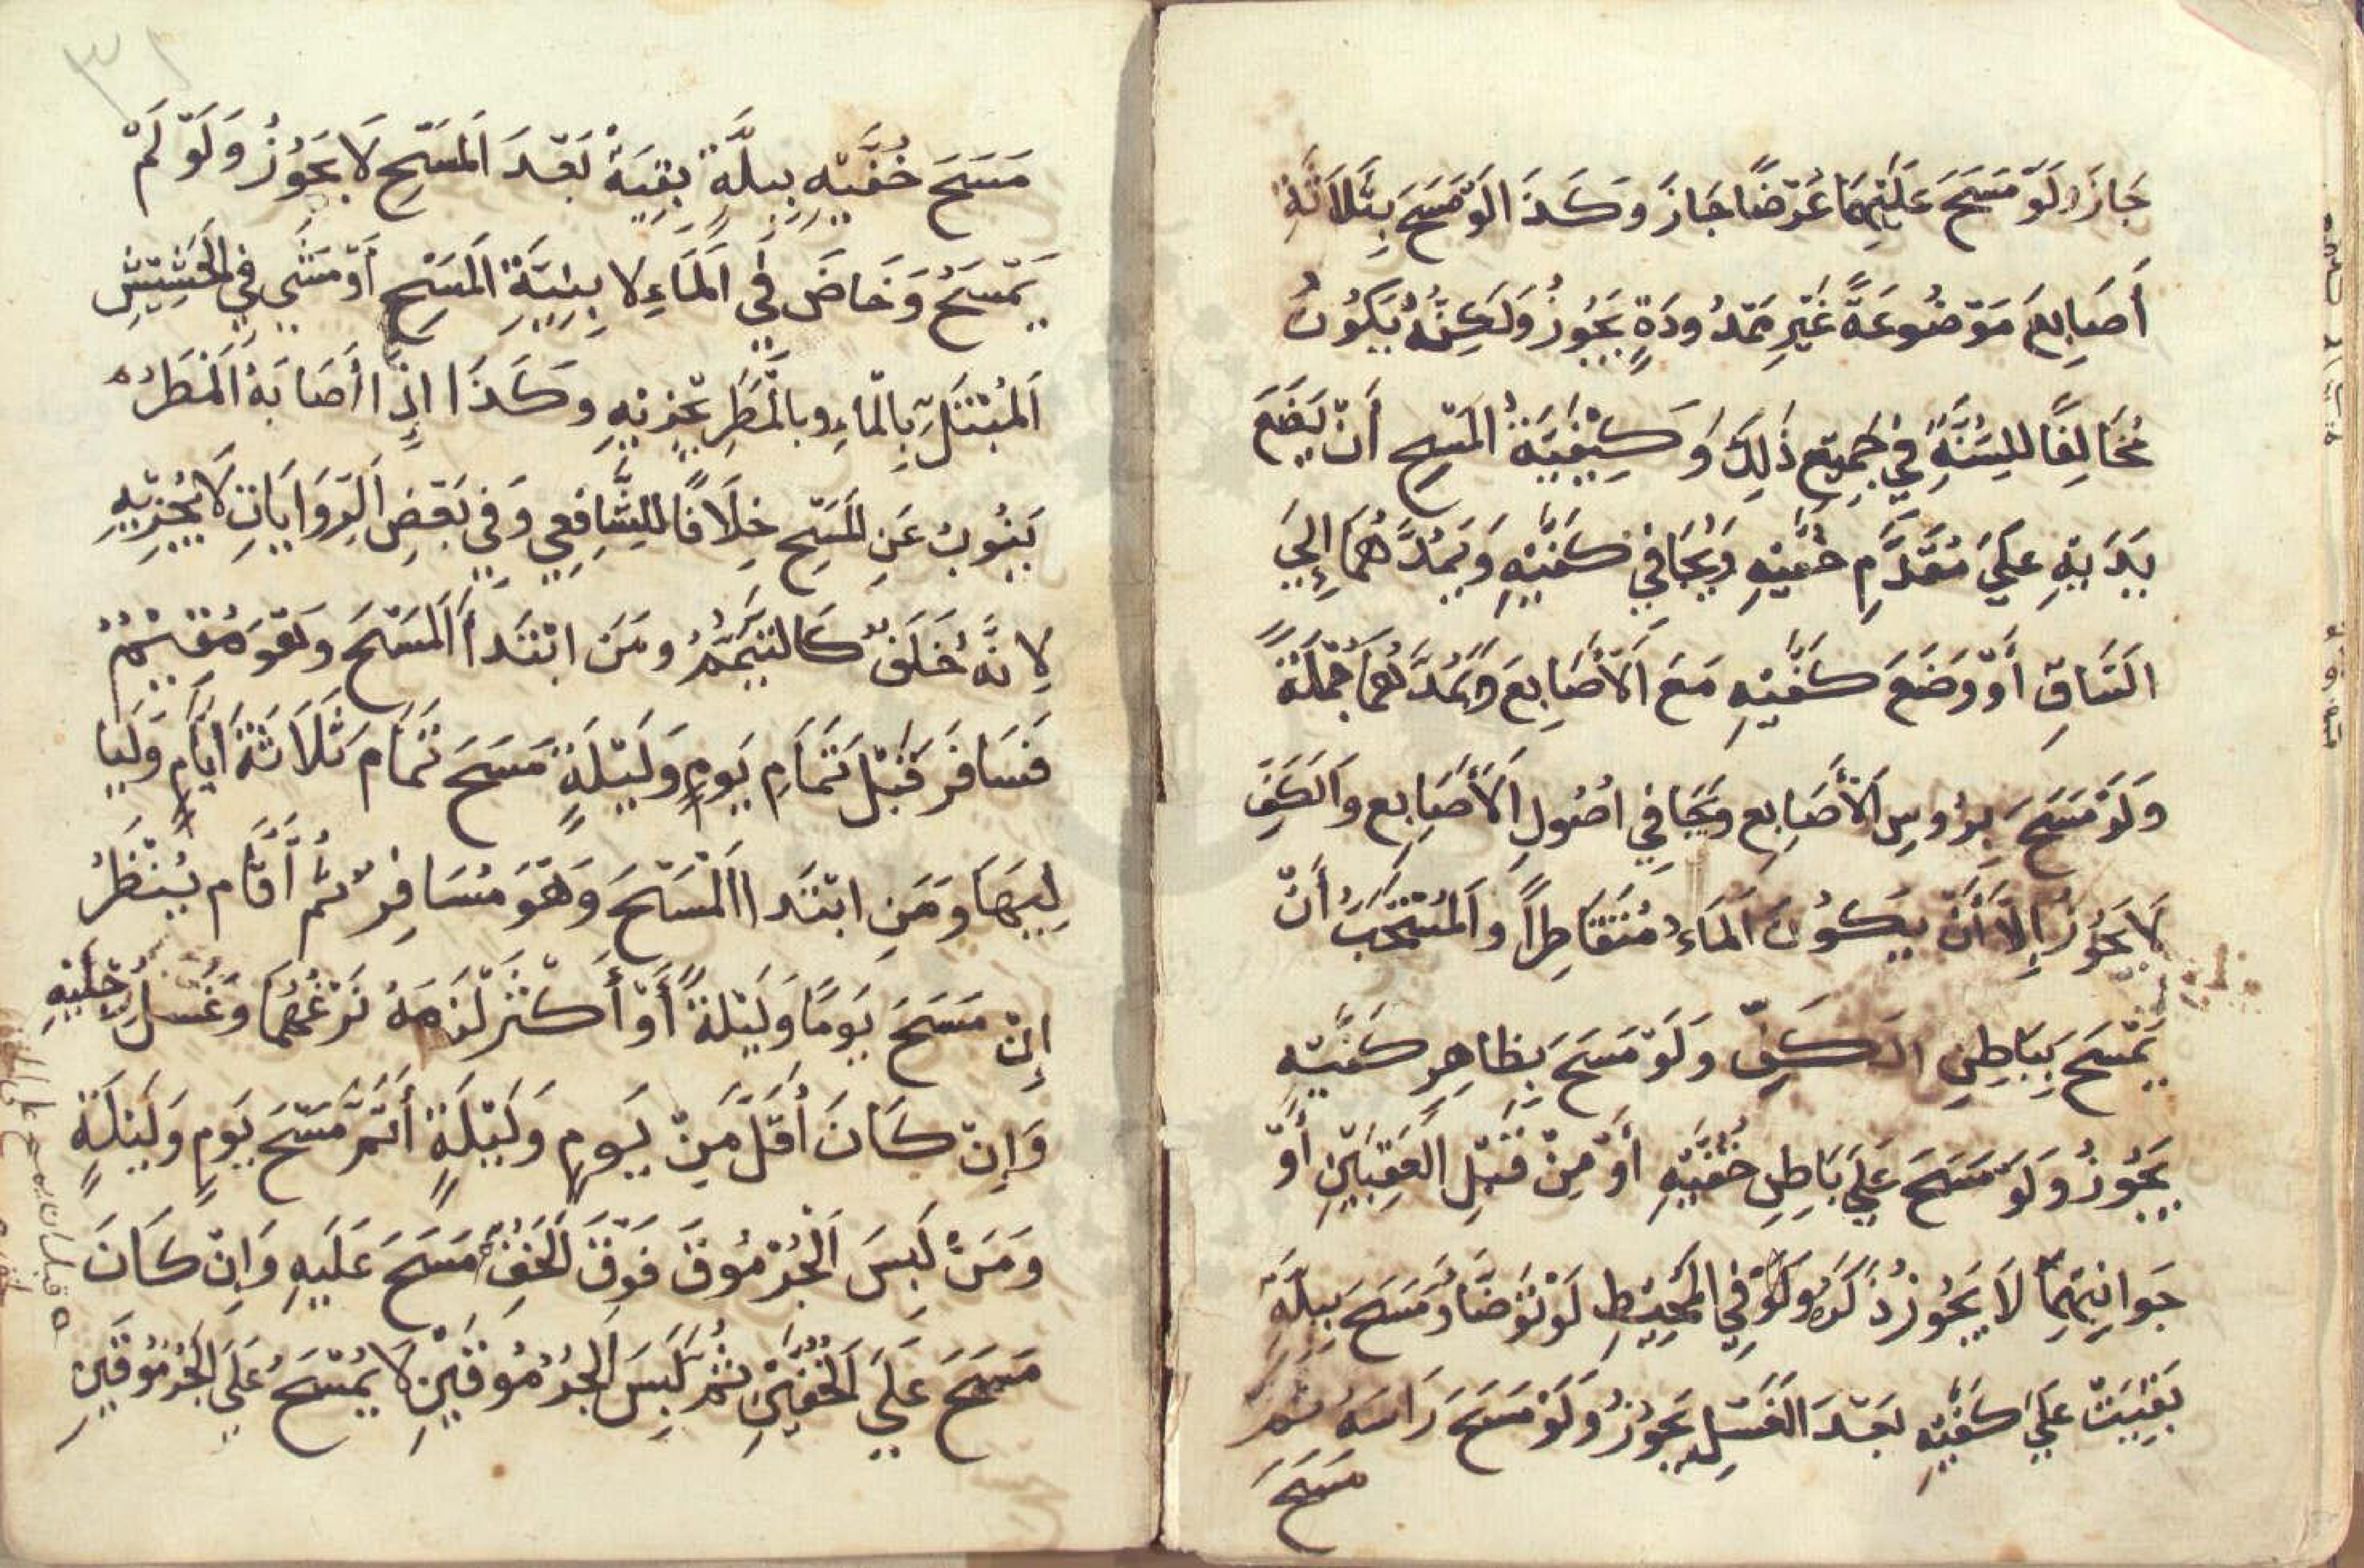 جَازَ وَلَوْ مَسَحَ عَلَيْهِمَا عَرْضًا جَازَ وَكَذَا لَوْ مَسَحَ بِثَلَاثَةِ
أَصَابِعَ مَوْضُوعَةً غَيْرِ مَمْدُودَةٍ يَجُوزُ وَلَكِنَّهُ يَكُونُ
مُخَالِفًا لِلسُّنَّةِ فِي جَمِيعِ ذَلِكَ وَكَيْفِيَّةُ الْمَسْحِ أَنْ يَضَعَ
يَدَيْهِ عَلَى مُقَدَّمِ خُفَّيْهِ وَيُجَافِي كَفَّيْهِ وَيَمُدَّهُمَا إِلَى
السَّاقِ أَوْ وَضَعَ كَفَّيْهِ مَعَ الْأَصَابِعَ وَيَمُدَّهُمَا جُمْلَةً
وَلَوْ مَسَحَ بِرُؤُسِ الْأَصَابِعِ وَيُجَافِي أُصُولِ الْأَصَابِعِ وَالْكَفِّ
لَا يَجُوزُ إِلَّا أَنْ يَكُونَ الْمَاءُ مُتَقَاطِرًا وَالْمُسْتَحَبُّ أَنْ
يَمْسَحَ بِبَاطِنِ الْكَفِّ وَلَوْ مَسَحَ بِظَاهِرِ كَفَّيْهِ
يَجُوزُ وَلَوْ مَسَحَ عَلَى بَاطِنِ خُفَّيْهِ أَوْ مِنْ قِبَلِ الْعَقِبَيْنِ أَوْ
جَوَانِبِهِمَا لَا يَجُوزُ ذَكَرَهُ وَلَوْ فِي الْمُحِيطِ لَوْ تَوَضَّأَ وَمَسَحَ بِبِلَّةٍ
بَقِيَتْ عَلَى كَفَّيْهِ بَعْدَ الْغَسْلِ يَجُوزُ وَلَوْ مَسَحَ رَاسَهُ ثُمَّ
مَسَحَ
٣١
مَسَحَ خُفَّيْهِ بِبِلَّةٍ بَقِيَةْ بَعْدَ الْمَسْحِ لَا يَجُوزُ وَلَوْ لَمْ
يَمْسَحْ وَخَاضَ فِي الْمَاءِ لَا بِنِيَّةِ الْمَسْحِ أَوْ مَشَى فِي الْحَشِيشِ
الْمُبْتَلِّ بِالْمَاءِ وبِالْمَطَرِ يُجْزِيْهِ وَكَذَا إِذَا أَصَابَهُ الْمَطَرُ
يَنُوبُ عَنِ الْمَسْحِ خِلَافًا لِلشَّافِعِي وَفِي بَعْضِ الرِّوَايَاتِ لَا يُجْزِيْهِ
لِانَّهُ خَلَفٌ كَالتَّيَمُّمِ وَمَنِ ابْتَدَأَ الْمَسْحَ وَهُوَ مُقِيْمٌ
فَسَافَرَ قَبْلَ تَمَامِ يَومٍ وَلَيْلَةٍ مَسَحَ تَمَامَ ثَلَاثَةَ أَيَّامٍ وَلَيَا
لِيهَا وَمَنِ ابْتَدَا الْمَسْحَ وَهُوَ مُسَافِرٌ ثُمَّ أَقَام يُنْظَرُ
إِنْ مَسَحَ يَومًا وَلَيْلَةً أَوْ أَكْثَرَ لَزِمَهُ نَزْعُهُمَا وَغَسْلُ رِجْلَيْهِ
وَإِنْ كَانَ أَقَلَّ مِنْ يَومٍ وَلَيْلَةٍ أَتَمَّ مَسْحَ يَومٍ وَلَيْلَةٍ
وَمَنْ لَبِسَ الْجُرْمُوقَ فَوْقَ الْخُفِّ مَسَحَ عَلَيهِ وَإِنْ كَانَ
مَسَحَ عَلَى الْخُفَّيْنِ ثُمَّ لَبِسَ الْجُرْمُوقَيْنِ لَا يُمْسَحُ عَلَى الْجُرْمُوقَيْنِ